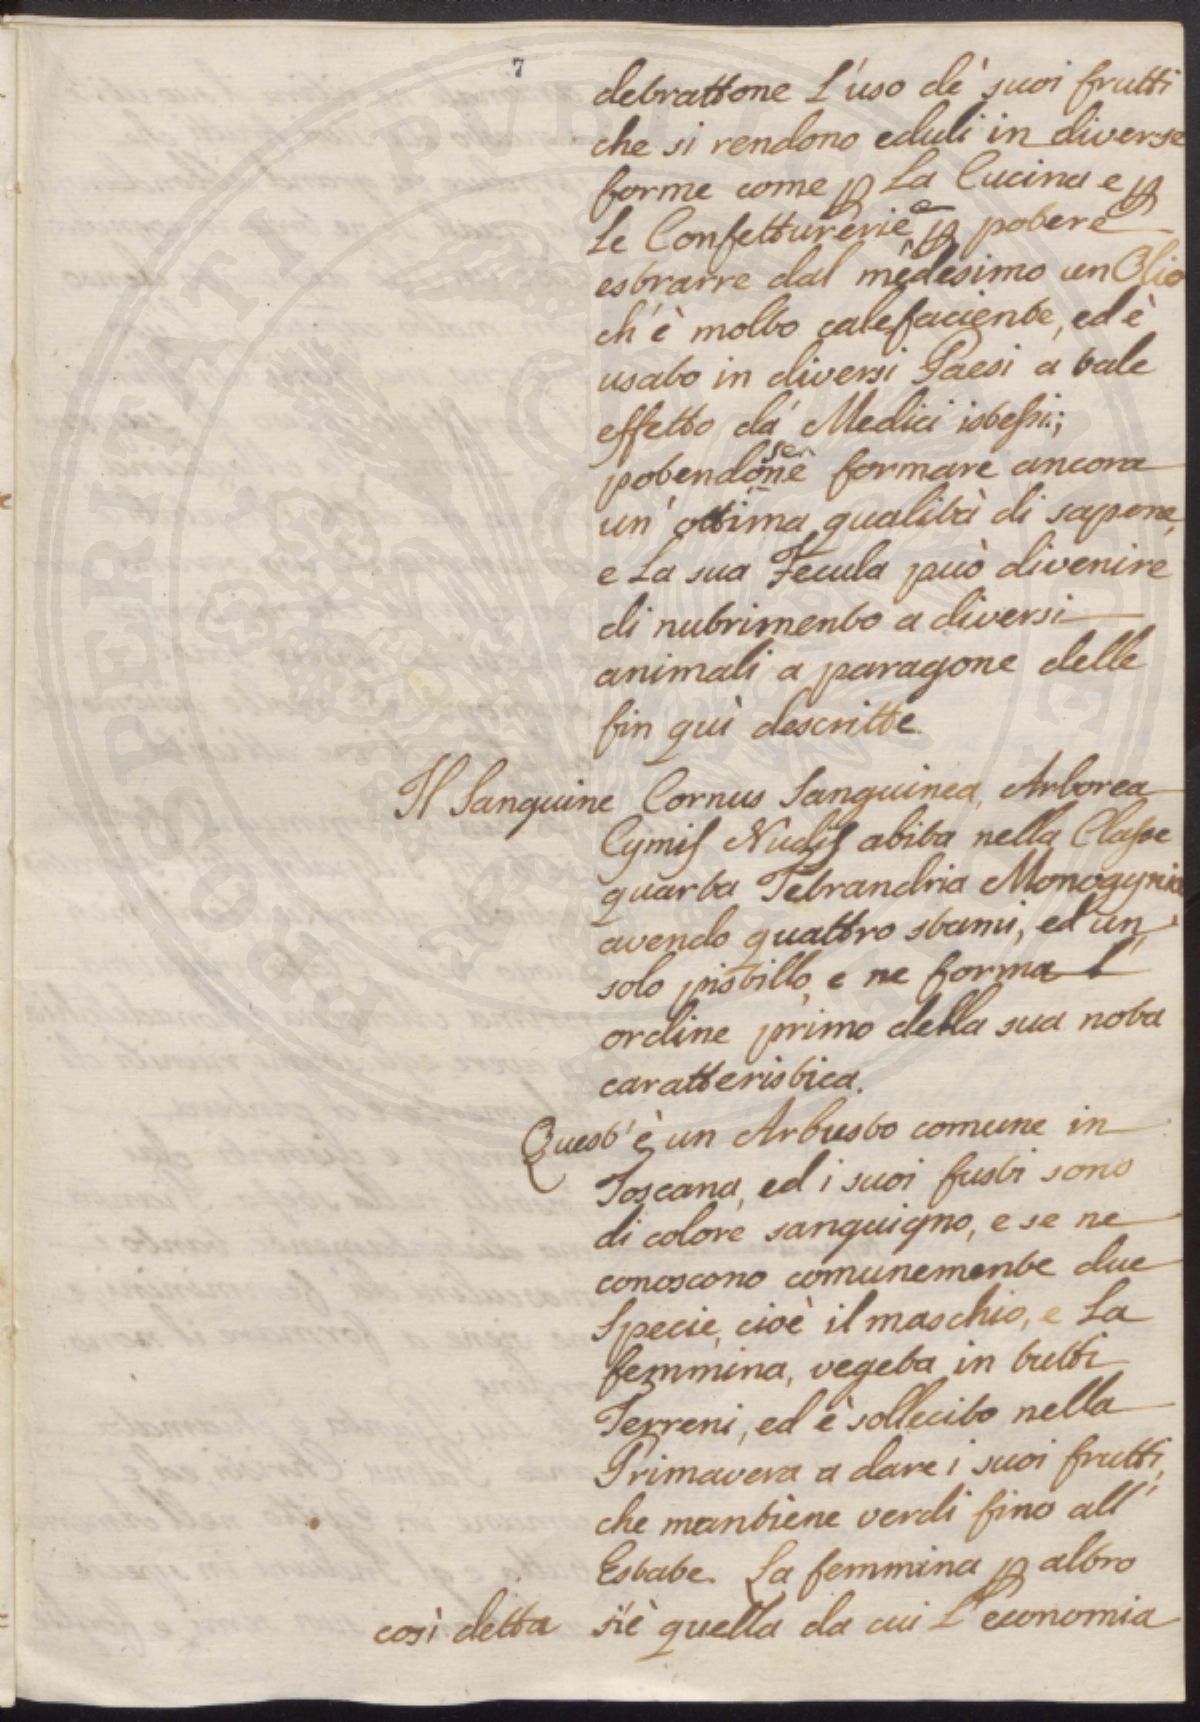 7
detrattone L'uso de' suoi frutti
che si rendono eduli in diverse
forme come p La Cucina e p
Le Confetturerie e p potere
estrarre dal medesimo un Olio
ch'è molto calefaciente, ed è
usato in diversi Paesi a tale
effetto dà Medici istessi;
potendosene formare ancora
un' ottima qualità di sapone,
e La sua Fecula può divenire
di nutrimento a diversi
animali a paragone delle
fin quì descritte.
Il Sanguine Cornus Sanguinea, Arborea
Cymis Nudis abita nella Classe
quarta Tetrandria Monogynia
avendo quattro stami, ed un
solo pistillo, e ne forma L'
ordine primo della sua nota
caratteristica.
Quest'è un Arbusto comune in
Toscana, ed i suoi fusti sono
di colore sanguigno, e se ne
conoscono comunemente due
Specie, cioè il maschio, e La
femmina, vegeta in tutti
Terreni, ed è sollecito nella
Primavera a dare i suoi frutti,
che mantiene verdi fino all'
Estate. La femmina p altro
così detta si è quella da cui L'economia
POSPERITATI PUBLICAE